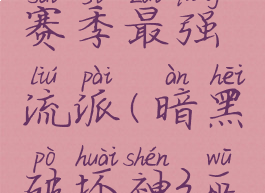 赛季最强
liú pài àn hēi
流派(暗黑
pò huài shén wū
破坏神3巫